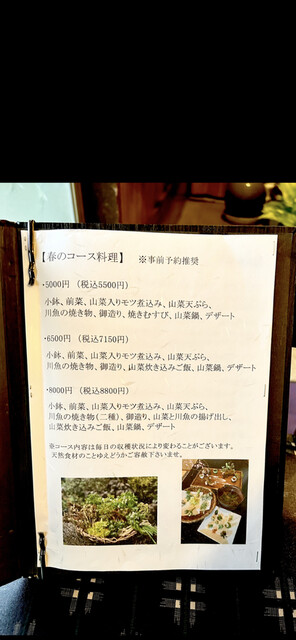 【春のコース料理】 ※事前予約推奨
・5000円 （税込5500円）
小鉢、前菜、山菜入りモツ煮込み、山菜天ぷら、
川魚の焼き物、御造り、焼きむすび、山菜鍋、デザート
・6500円 （税込7150円）
小鉢、前菜、山菜入りモツ煮込み、山菜天ぷら、
川魚の焼き物、御造り、山菜炊き込みご飯、山菜鍋、デザート
・8000円 （税込8800円）
小鉢、前菜、山菜入りモツ煮込み、山菜天ぷら、
川魚の焼き物(二種)、御造り、山菜と川魚の揚げ出し、
山菜炊き込みご飯、山菜鍋、デザート
※コース内容は毎日の収穫状況により変わることがございます。
天然食材のことゆえどうかご容赦下さいませ。